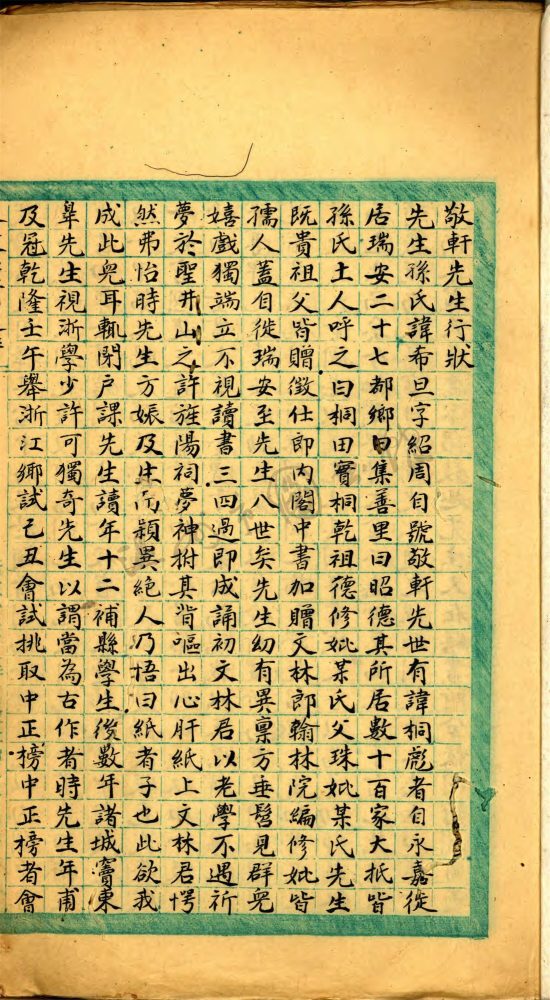 敬軒先生行狀
先生孫氏諱希旦字紹周自號敬軒先世有諱桐彪者自永嘉徙
居瑞安二十七都鄉曰集善里曰昭德其所居數十百家大抵皆
孫氏土人呼之曰桐田實桐乾祖德修妣某氏父珠妣某氏先生
既貴祖父皆贈徵仕郎內閣中書加贈文林郎翰林院編修妣皆
孺人蓋自徙瑞安至先生八世矣先生幼有異稟方垂髫見群兒
嬉戲獨端立不視讀書三四過即成誦初文林君以老學不遇祈
夢於聖井山之許旌陽祠夢神拊其背嘔出心肝紙上文林君愕
然弗怡時先生方娠及生而穎異絕人乃悟曰紙者子也此欲我
成此兒耳輒閉戶課先生讀年十二補縣學生後數年諸城竇東
皋先生視浙學少許可獨奇先生以謂當為古作者時先生年甫
及冠乾隆壬午舉浙江鄉試己丑會試挑取中正榜中正榜者會